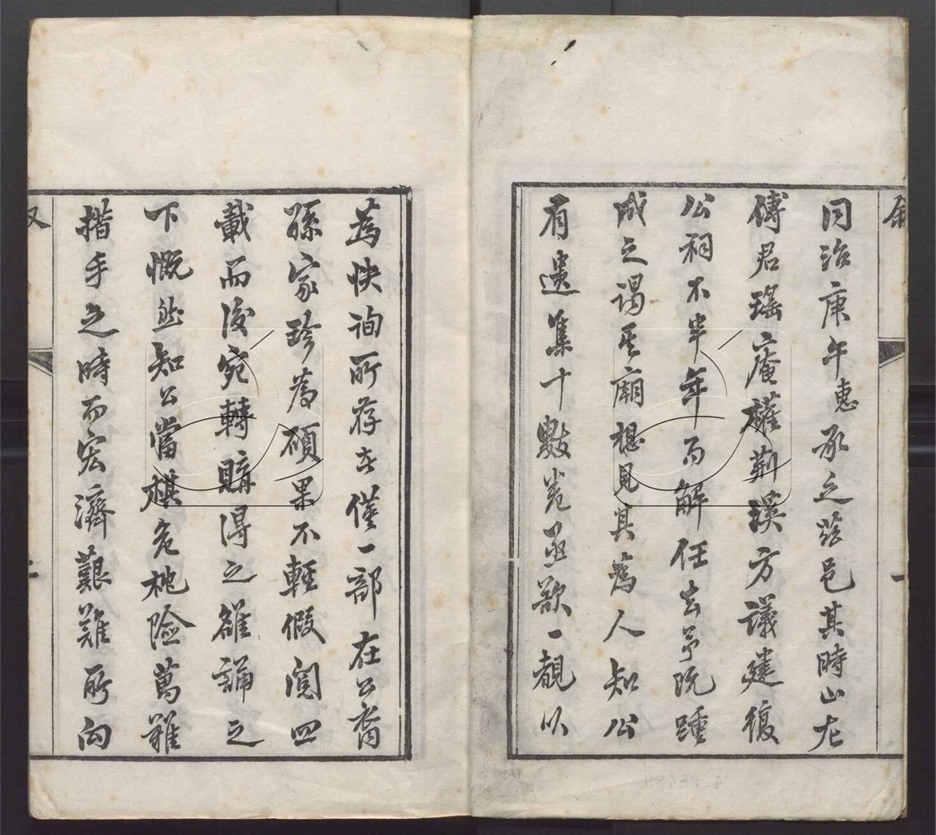 同治庚午惠承乏茲邑其時山左
傅君瑤庵權荊溪方議建復
公祠不半年而解任去予既踵
成之謁其廟想見其為人知公
有遺集十數卷亟欲一覩以
為快詢所存者僅一部在公裔
孫家珍為碩果不輕假閱四
載而後宛轉購得之雒誦之
下慨然知公當棋危枕險萬難
措手之時而宏濟艱難所向